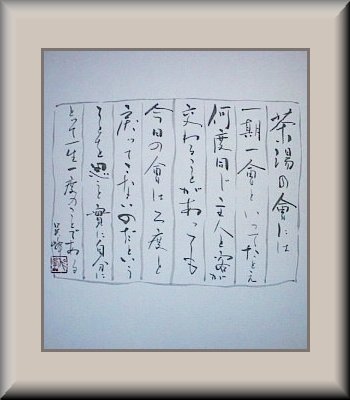 茶湯の會には
一期一會といってたとえ
何度同じ主人と客が
交わることがあっても
今日の會は二度と
戻ってこないのだという
そう思ふと實に自分に
とって一生一度のことである